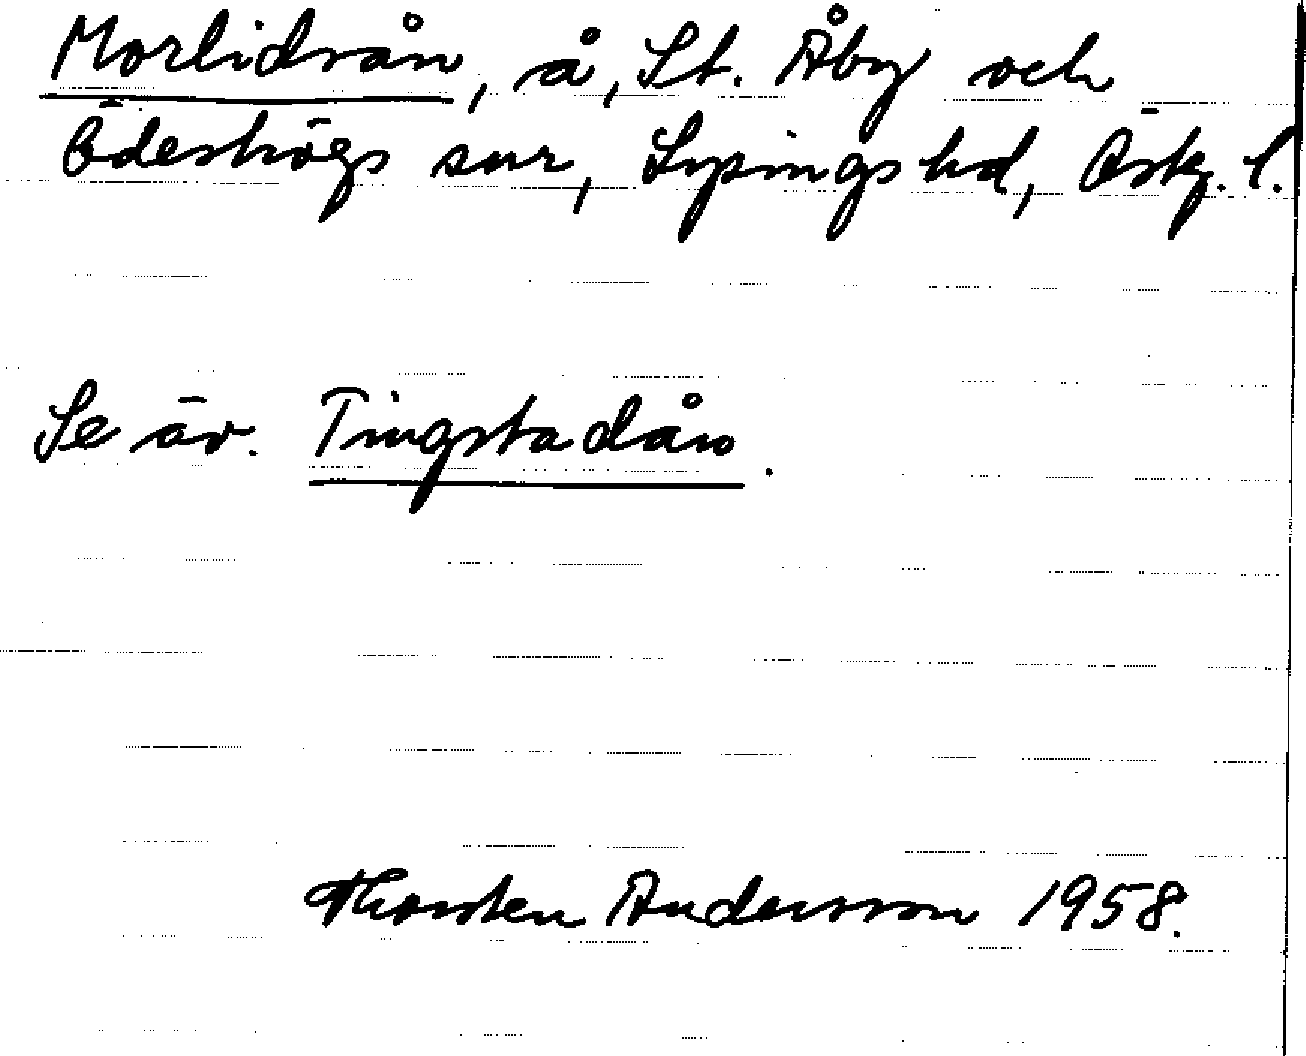 Morlidsån, å, St. Åby och
Ödeshögs snr, Lysings hd, Östg. l.
Se äv. Tingstadån.
Thorsten Andersson 1958.